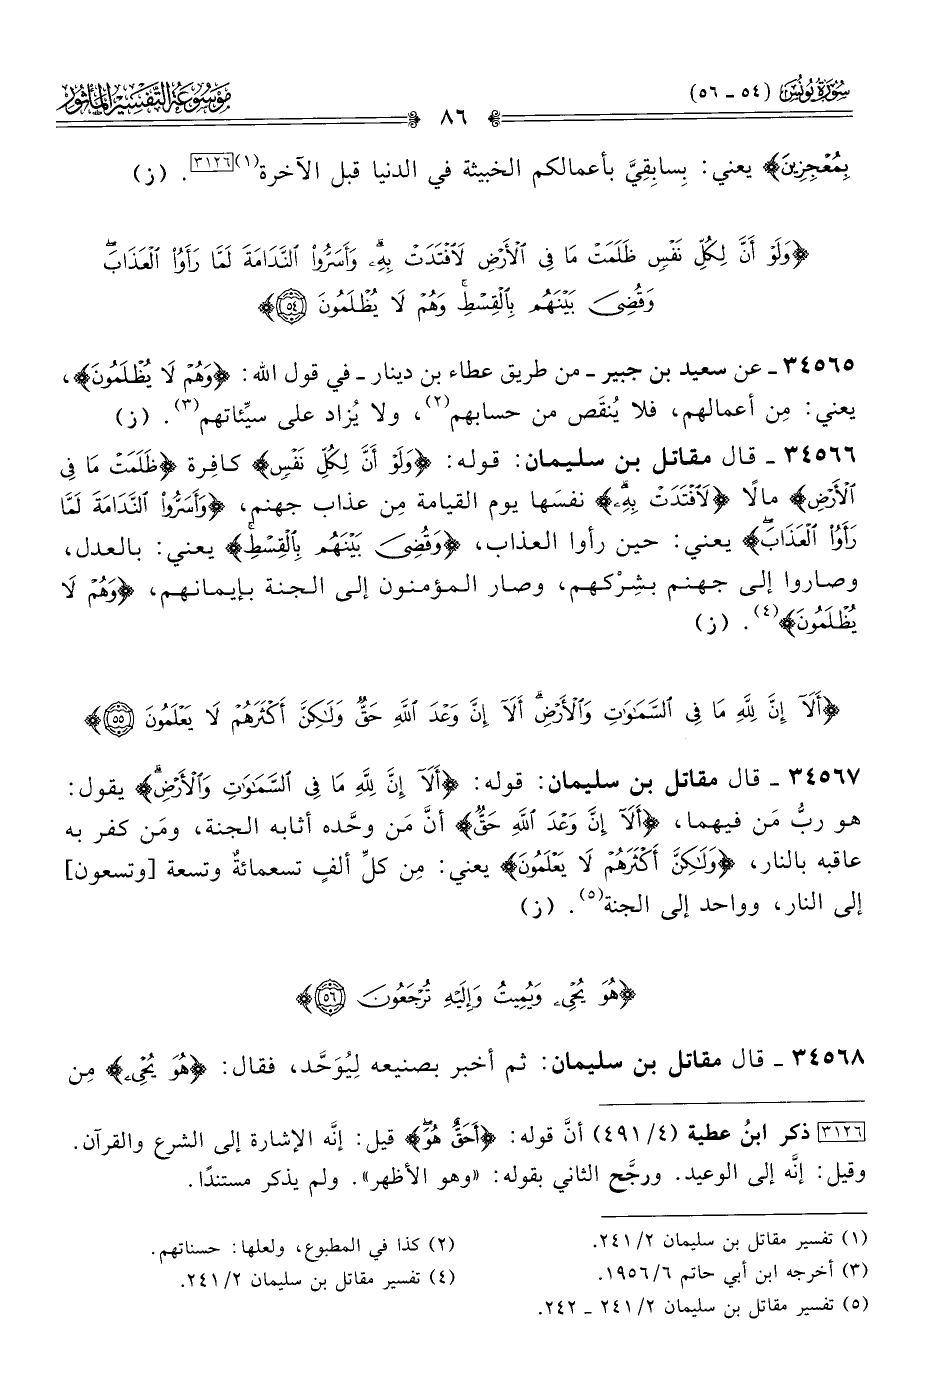 سُورَةُ يُونُسَ (٥٤ - ٥٦)
٨٦
مَوْسُوعَةُ التَّفْسِيرِ المَأْثُورِ
بِمُعْجِزِينَ﴾ يعني: بِسابِقِيَّ بأعمالكم الخبيثة في الدنيا قبل الآخرة(١)[٣١٢٦]. (ز)
﴿وَلَوْ أَنَّ لِكُلِّ نَفْسٍ ظَلَمَتْ مَا فِى ٱلْأَرْضِ لَٱفْتَدَتْ بِهِۦۗ وَأَسَرُّوا۟ ٱلنَّدَامَةَ لَمَّا رَأَوُا۟ ٱلْعَذَابَۖ
وَقُضِىَ بَيْنَهُم بِٱلْقِسْطِۚ وَهُمْ لَا يُظْلَمُونَ ٥٤﴾
٣٤٥٦٥ - عن سعيد بن جبير - من طريق عطاء بن دينار - في قول الله: ﴿وَهُمْ لَا يُظْلَمُونَ﴾،
يعني: مِن أعمالهم، فلا يُنقَص من حسابهم(٢)، ولا يُزاد على سيِّئاتهم(٣). (ز)
٣٤٥٦٦ - قال مقاتل بن سليمان: قوله: ﴿وَلَوْ أَنَّ لِكُلِّ نَفْسٍ﴾ كافِرة ﴿ظَلَمَتْ مَا فِى
ٱلْأَرْضِ﴾ مالًا ﴿لَٱفْتَدَتْ بِهِۦۗ﴾ نفسَها يوم القيامة مِن عذاب جهنم، ﴿وَأَسَرُّوا۟ ٱلنَّدَامَةَ لَمَّا
رَأَوُا۟ ٱلْعَذَابَۖ﴾ يعني: حين رأوا العذاب، ﴿وَقُضِىَ بَيْنَهُم بِٱلْقِسْطِۚ﴾ يعني: بالعدل،
وصاروا إلى جهنم بشِرْكهم، وصار المؤمنون إلى الجنة بإيمانهم، ﴿وَهُمْ لَا
يُظْلَمُونَ﴾(٤). (ز)
﴿أَلَآ إِنَّ لِلَّهِ مَا فِى ٱلسَّمَٰوَٰتِ وَٱلْأَرْضِۗ أَلَآ إِنَّ وَعْدَ ٱللَّهِ حَقٌّ وَلَٰكِنَّ أَكْثَرَهُمْ لَا يَعْلَمُونَ ٥٥﴾
٣٤٥٦٧ - قال مقاتل بن سليمان: قوله: ﴿أَلَآ إِنَّ لِلَّهِ مَا فِى ٱلسَّمَٰوَٰتِ وَٱلْأَرْضِۗ﴾ يقول:
هو ربُّ مَن فيهما، ﴿أَلَآ إِنَّ وَعْدَ ٱللَّهِ حَقٌّ﴾ أنَّ مَن وحَّده أثابه الجنة، ومَن كفر به
عاقبه بالنار، ﴿وَلَٰكِنَّ أَكْثَرَهُمْ لَا يَعْلَمُونَ﴾ يعني: مِن كلِّ ألفٍ تسعمائةٌ وتسعة [وتسعون]
إلى النار، وواحد إلى الجنة(٥). (ز)
﴿هُوَ يُحْىِۦ وَيُمِيتُ وَإِلَيْهِ تُرْجَعُونَ ٥٦﴾
٣٤٥٦٨ - قال مقاتل بن سليمان: ثم أخبر بصنيعه لِيُوَحَّد، فقال: ﴿هُوَ يُحْىِۦ﴾ مِن
[٣١٢٦] ذكر ابنُ عطية (٤/ ٤٩١) أنَّ قوله: ﴿أَحَقٌّ هُوَۖ﴾ قيل: إنَّه الإشارة إلى الشرع والقرآن.
وقيل: إنَّه إلى الوعيد. ورجَّح الثاني بقوله: «وهو الأظهر». ولم يذكر مستندًا.
(١) تفسير مقاتل بن سليمان ٢/ ٢٤١.
(٢) كذا في المطبوع، ولعلها: حسناتهم.
(٣) أخرجه ابن أبي حاتم ٦/ ١٩٥٦.
(٤) تفسير مقاتل بن سليمان ٢/ ٢٤١.
(٥) تفسير مقاتل بن سليمان ٢/ ٢٤١ - ٢٤٢.